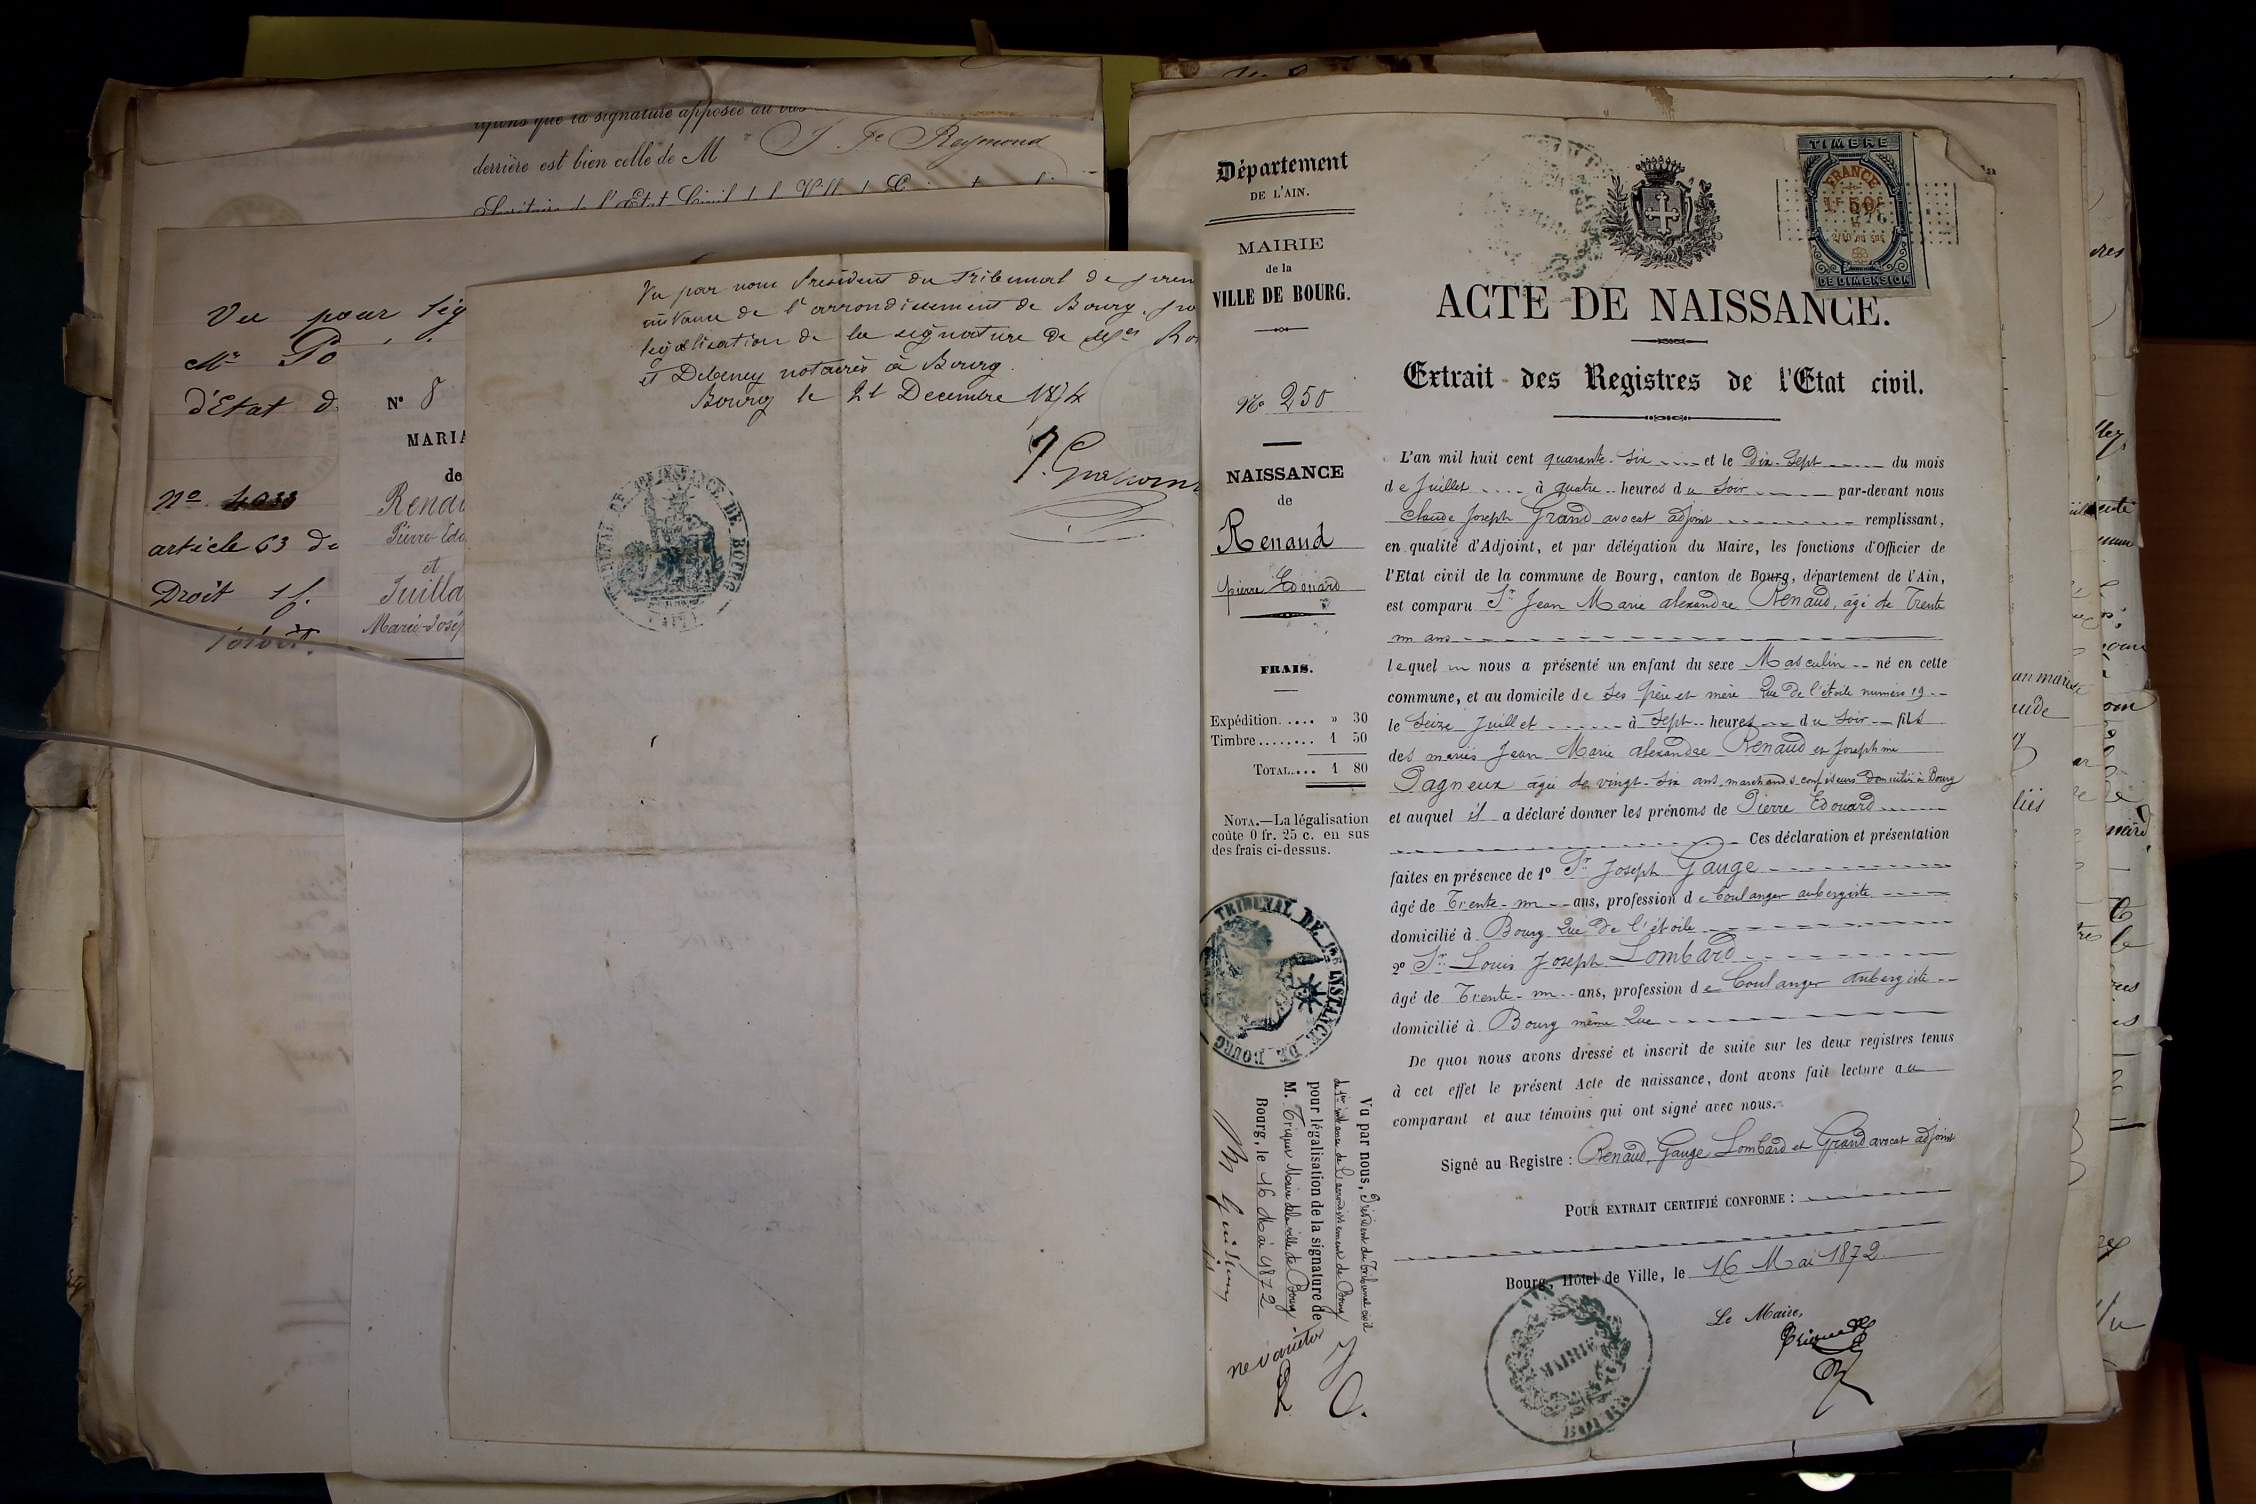 derrière est bien celle de M r J. Fr Reymond
Vu pour
Mr Po
d'Etat d
No 4033
article 63 de
Droit 1 f.
N° 8
MARIA
de
Renau
Pierre-Edo
et
Juilla
Marie-Josép
Vu par nous Président du Tribunal de prem
instance de l'arrondissement de Bourg, po
légalisation de la signature de Mes Ro
et Debeney notaires à Bourg.
Bourg le 21 Decembre 1874
TRIBUNAL DE 1ERE INSTANCE DE BOURG
Département
DE L'AIN.
MAIRIE
de la
VILLE DE BOURG.
No 250
NAISSANCE
de
Renaud
pierre Edouard
FRAIS.
Expédition..... » 30
Timbre........ 1 50
TOTAL.... 1 80
NOTA.—La légalisation
coûte 0 fr. 25 c. en sus
des frais ci-dessus.
TRIBUNAL DE 1RE INSTANCE DE BOURG
Vu par nous, Président du Tribunal civil
de 1ère instance de l'arrondissement de Bourg
pour légalisation de la signature de
M. Triquer Maire de la ville de Bourg.
Bourg, le 16 Mai 1872
ne varietur
TIMBRE
FRANCE
1F 50C
DE DIMENSION
ACTE DE NAISSANCE.
Extrait des Registres de l'Etat civil.
L'an mil huit cent quarante-six et le Dix-Sept du mois
de Juillet à quatre heures du Soir par-devant nous
Claude Joseph Grand avocat adjoint remplissant,
en qualité d'Adjoint, et par délégation du Maire, les fonctions d'Officier de
l'Etat civil de la commune de Bourg, canton de Bourg, département de l'Ain,
est comparu Sr Jean Marie alexandre Renaud, âgé de Trente
un ans
lequel nous a présenté un enfant du sexe Masculin né en cette
commune, et au domicile de Ses père et mère Rue de l'étoile numéro 19
le Seize Juillet à Sept heures du Soir fils
des mariés Jean Marie alexandre Renaud et Josephine
Pagneux âgée de vingt-six ans marchands confiseurs Domiciliés à Bourg
et auquel il a déclaré donner les prénoms de Pierre Edouard
Ces déclaration et présentation
faites en présence de 1° Sr Joseph Gauge
âgé de Trente-un ans, profession de boulanger aubergiste
domicilié à Bourg Rue de l'étoile
2° Sr Louis Joseph Lombard
âgé de Trente-un ans, profession de Boulanger Aubergiste
domicilié à Bourg même Rue
De quoi nous avons dressé et inscrit de suite sur les deux registres tenus
à cet effet le présent Acte de naissance, dont avons fait lecture au
comparant et aux témoins qui ont signé avec nous.
Signé au Registre : Renaud, Gauge Lombard et Grand avocat adjoint
POUR EXTRAIT CERTIFIÉ CONFORME :
Bourg, Hôtel de Ville, le 16 Mai 1872
Le Maire,
MAIRIE